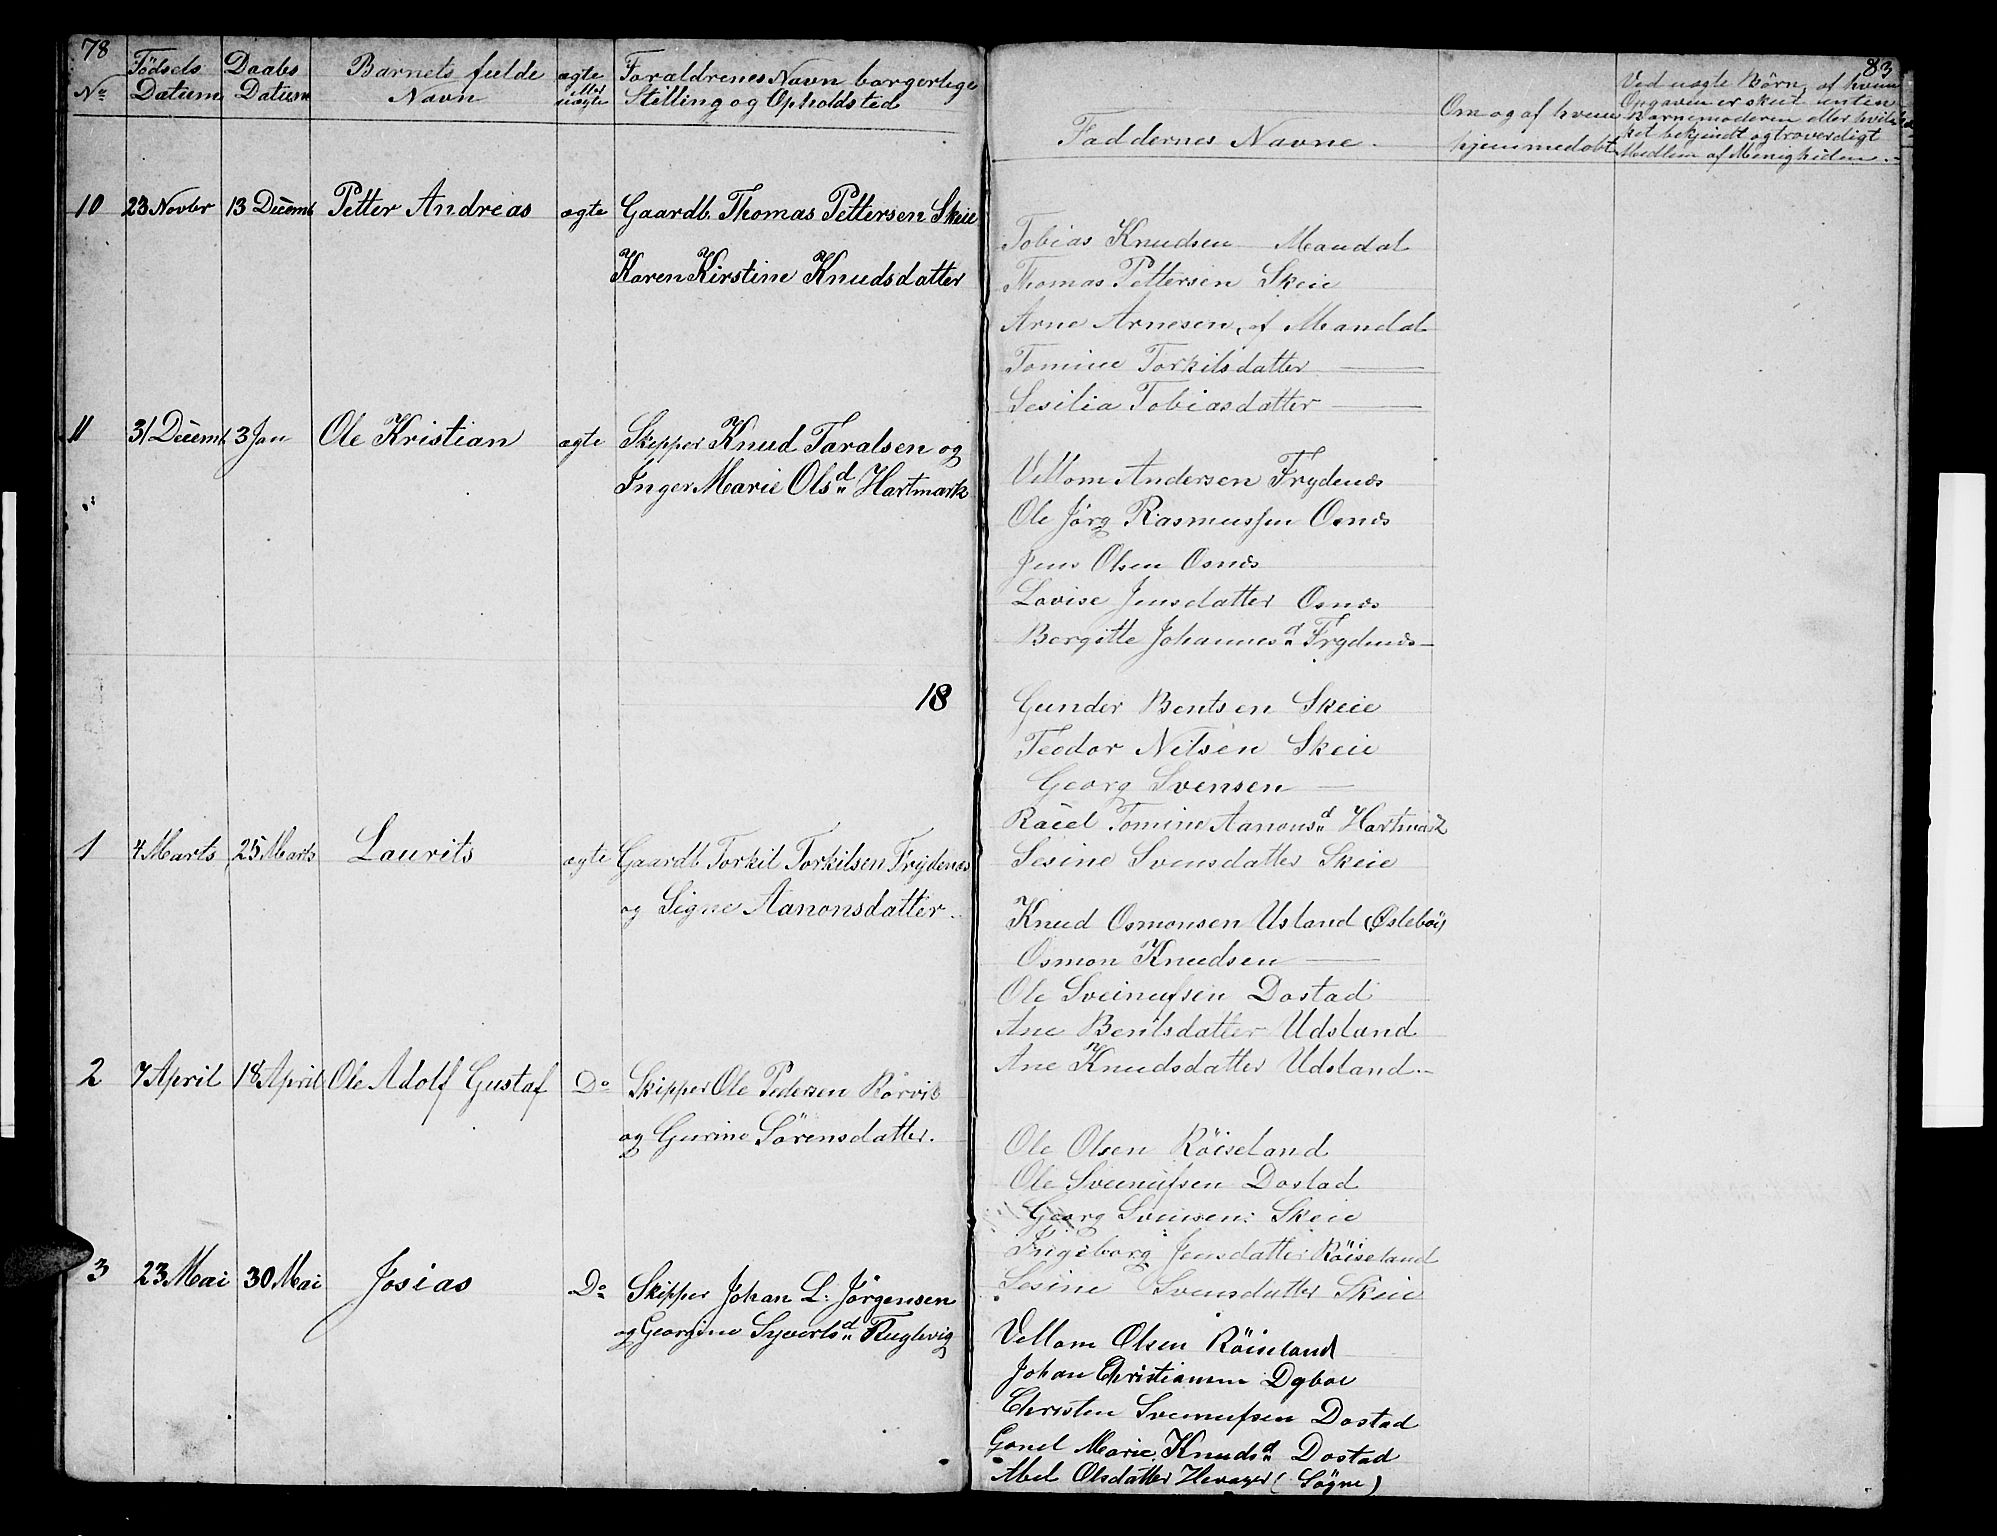 78
No
Födsels
Datum
Daabs
Datum
Barnets fulde
Navn
ægte
eller
uægte
Foraldrenes Navn borgerlige
Stilling og Opholdsted
10
23 Novbr
13 Decemb
Petter Andreas
ægte
Gaardb. Thomas Pettersen Skeie
Karen Kirstine Knudsdatter
11
31 Decemb
3 Jan
Ole Kristian
ægte
Skipper Knud Taralsen og
Inger Marie Olsd Hartmark
18
1
4 Marts
25 Marts
Laurits
ægte
Gaardb Torkil Torkilsen Frydenæs
og Signe Aanonsdatter
2
7 April
18 April
Ole Adolf Gustaf
Do
Skipper Ole Pedersen Rörvik
og Gurine Sörensdatter.
3
23 Mai
30 Mai
Josias
Do
Skipper Johan L: Jörgensen
og Georgine Syvertsd Fuglevig
83
Faddernes Navne.
Om og af hvem
hjemmedøbt
Ved uægte Börn, af hvem
Opgaven er skeet enten
Barnemoderen eller hvil
ket bekjendt og troverdigt
Medlem af Menigheden.
Tobias Knudsen Mandal
Thomas Pettersen Skeie
Arne Arnesen, af Mandal
Tomine Torkilsdatter —
Sesilia Tobiasdatter —
Vellom Andersen Frydenæs
Ole Jörg Rasmussen Osnæs
Jens Olsen Osnæs
Lovise Jensdatter Osnæs
Bergitte Johannesd Frydenæs
Gunder Bentsen Skeie
Teodor Nilsen Skeie
Georg Svensen —
Racel Tomine Aanonsd Hartmark
Sesine Svensdatter Skeie
Knud Osmonsen Usland (Øslebö)
Osmon Knudsen —
Ole Sveinussen Dostad
Ane Bentsdatter Udsland
Ane Knudsdatter Udsland.
Ole Olsen Röiseland
Ole Sveinussen Dostad
Georg Svensen: Skeie
Ingeborg Jensdatter Röiseland
Sesine Svensdatter Skeie
Vellom Olsen Röiseland
Johan Christiansen Dyboe
Christen Svenussen Dostad
Gonel Marie Knudsd Dostad
Abel Olsdatter (Sögne)